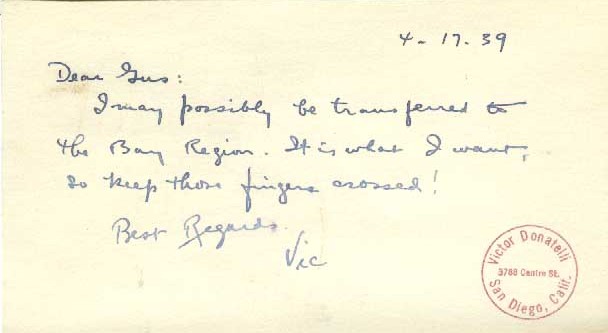 4-17-39
Dear Gus:
I may possibly be transferred to
the Bay Region. It is what I want,
so keep those fingers crossed!
Best Regards
Vic
Victor Donatelli
3788 Centre St.
San Diego, Calif.